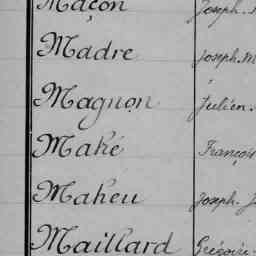 Maçon Joseph.
Madre Joseph. M
Magnon Julien.
Mahé François
Maheu Joseph. J
Maillard Grégoire